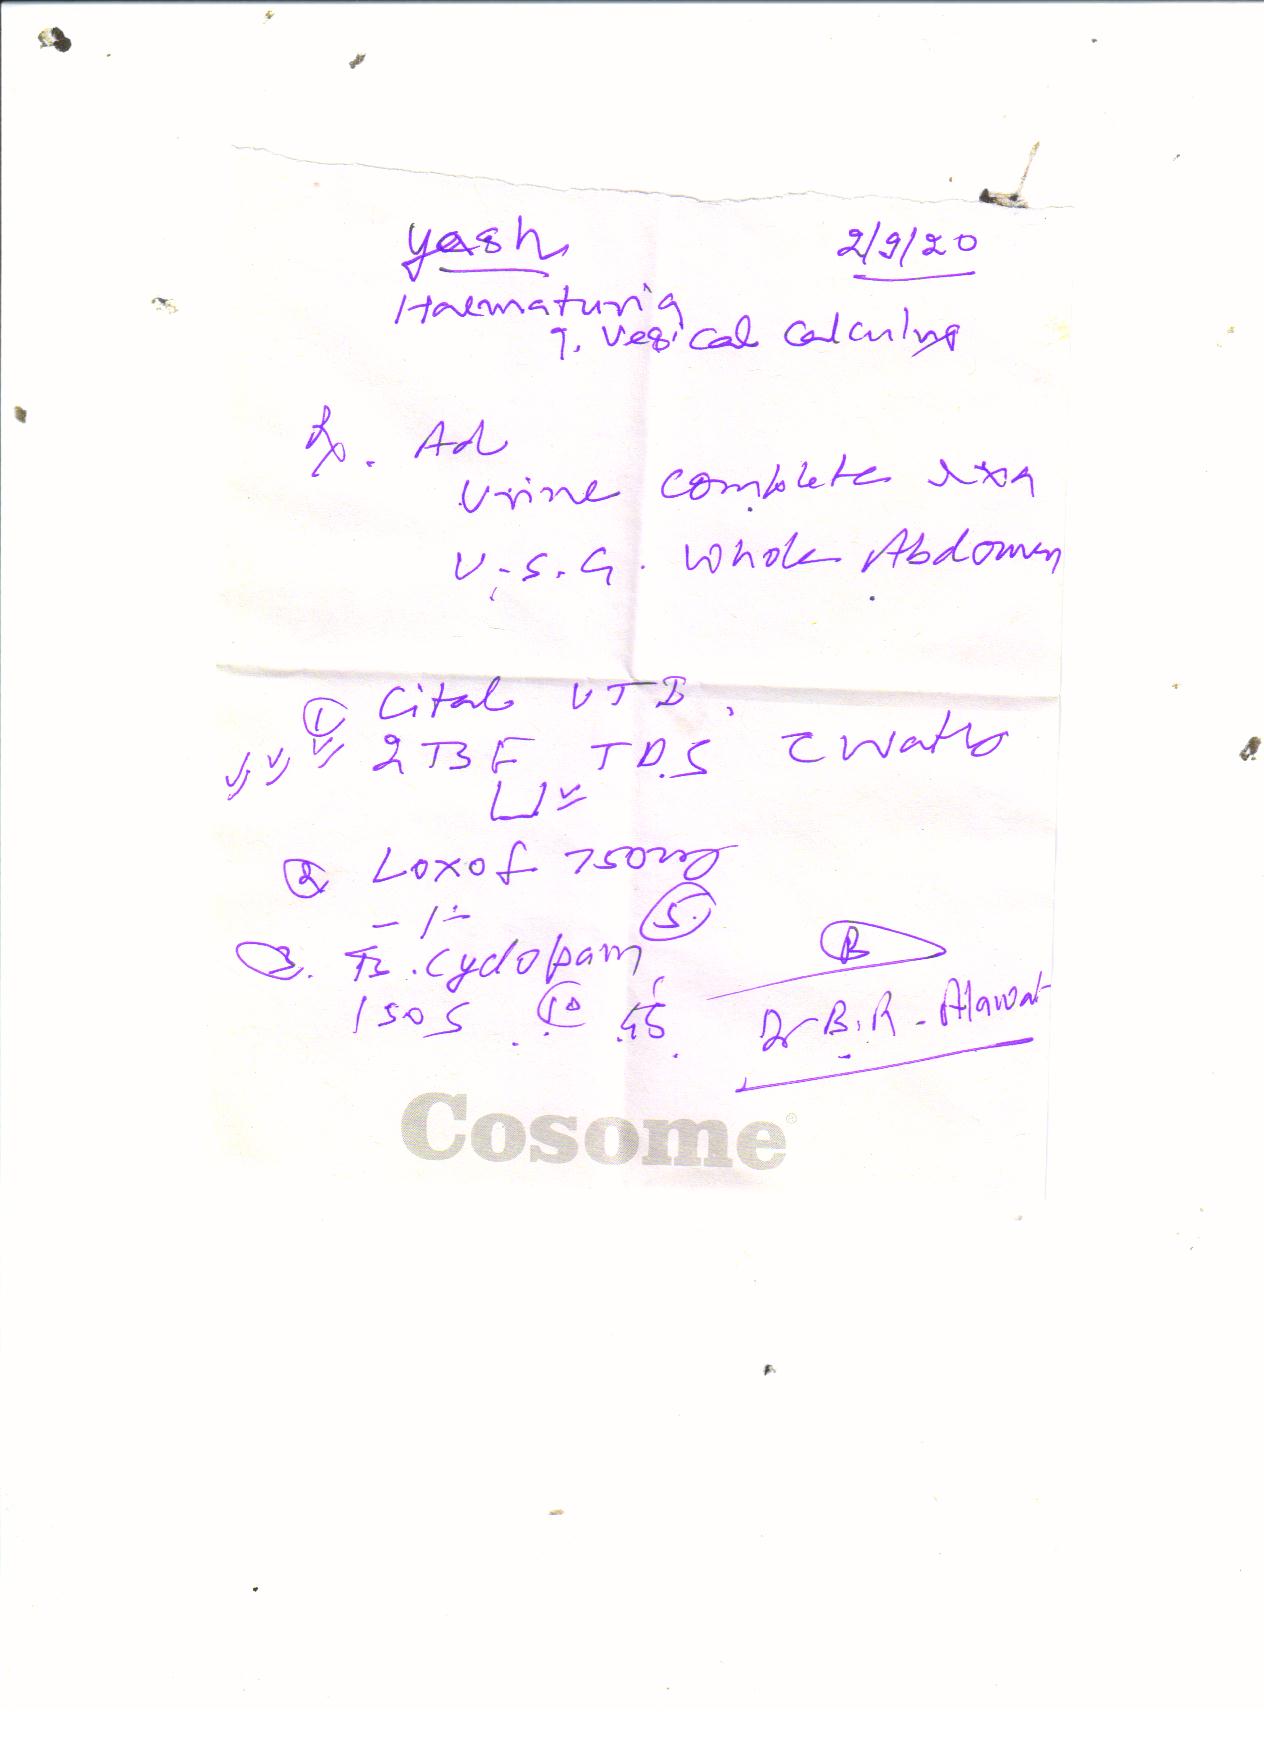 Yash 2/9/20
Haematuria
?. Vesical calculus
Rx. Ad
Urine complete exa
U.S.G. Whole Abdomen
① Cital UTB.
2 TSF TDS c water
② Loxof 750mg
- 1 -
⑤
③. Tb. Cyclopam
1 SOS ⑩
Dr B.R. Alawat
Cosome